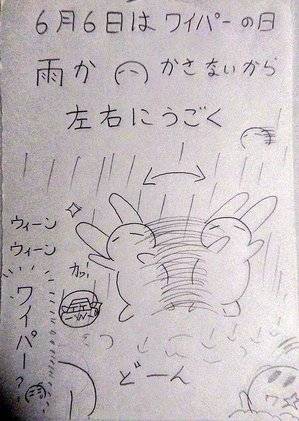 6月6日は ワイパーの日
雨か かさないから
左右にうごく
ウィーン
ウィーン
ワイパー?
カッ!
どーん